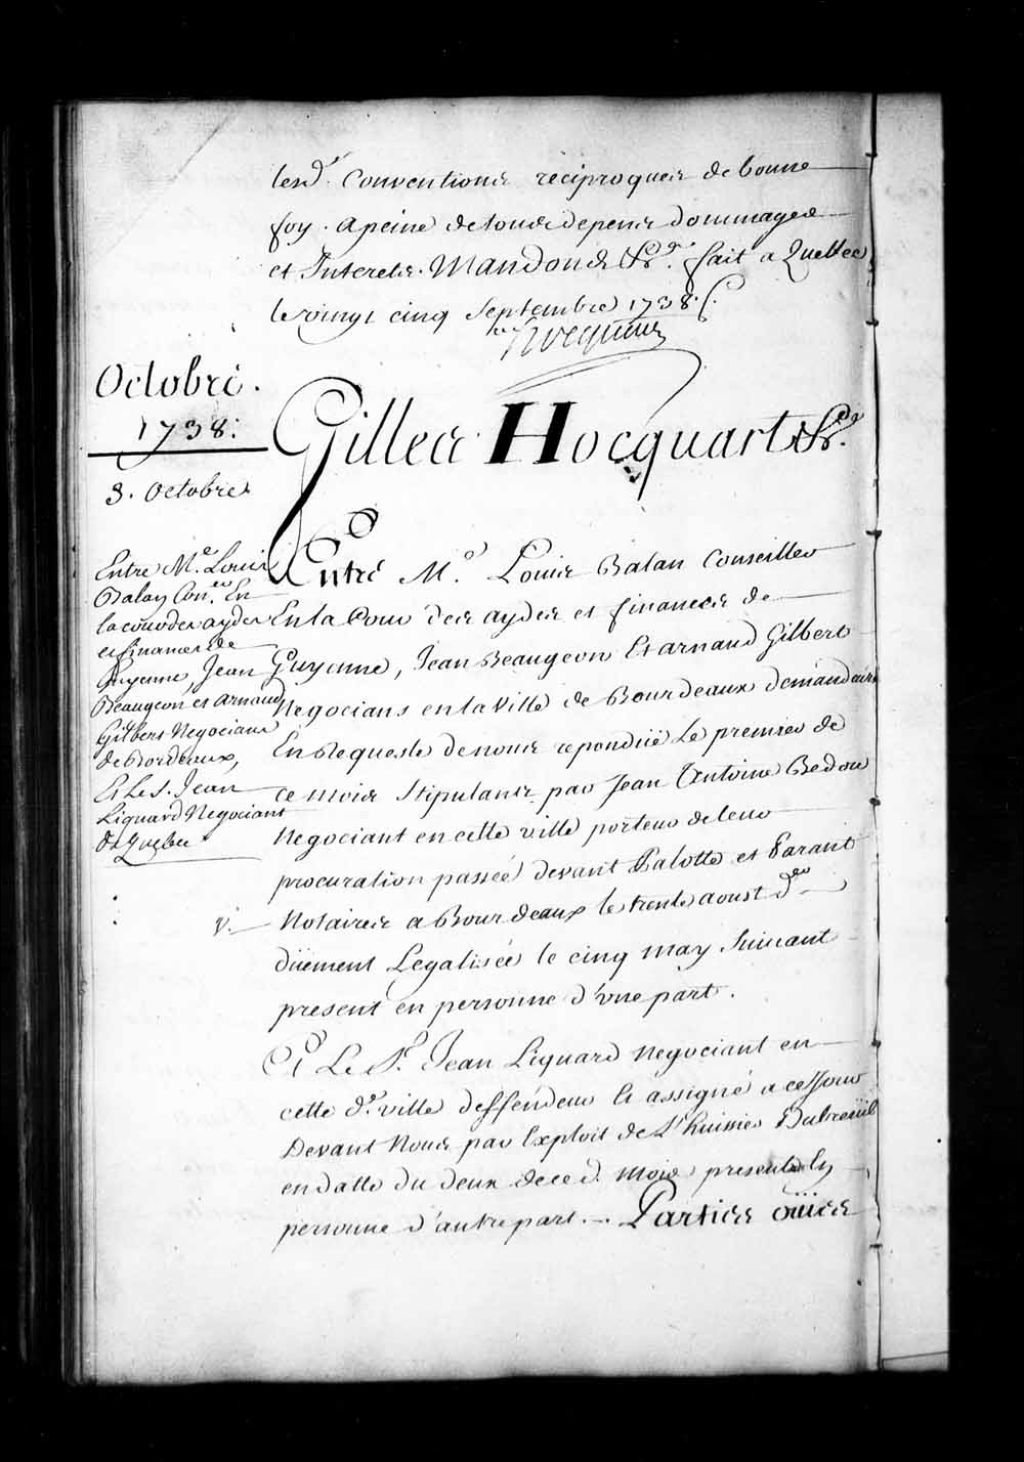 lesd. Conventions reciproques de bonne
foy. a peine de tous depens dommages
et Interets. Mandons &c. fait a Quebec
le vingt cinq Septembre 1738 ./.
Hocquart
Octobre.
1738.
3. Octobre
Gilles Hocquart &c.
Entre Me. Louis
Balan Coner. En
la cour des aydes
et finances de
Guyenne, Jean
Beaugeon et arnaud
Gilbert Negocians
de Bordeaux,
Et Le s. Jean
Liquard Negociant
de Quebec
Entre Me. Louis Balan Conseiller
En la Cour des aydes et finances de
Guyenne, Jean Beaugeon Et arnaud Gilbert
Negocians en la Ville de Bourdeaux demandeurs
En Requeste de nous repondüe Le premier de
ce mois Stipulans par Jean Antoine Bedou
Negociant en cette ville porteur de leur
procuration passée devant Palotte et Parant
v. Notaires a Bourdeaux le trente aoust der
düement Legalisée le cinq may Suivant
present en personne d'une part.
Et Le Sr. Jean Liquard negociant en
cette de. ville deffendeur Et assigné a ce Jour
Devant Nous par Exploit de L'huissier Dubreüil
en datte du deux de ced. mois present En
personne d'autre part. Parties oüies